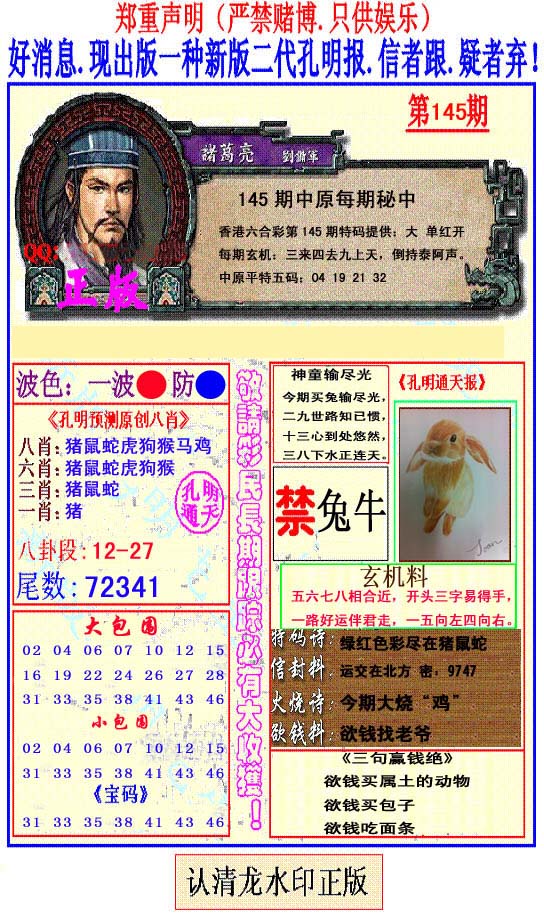 郑重声明（严禁赌博.只供娱乐）
好消息.现出版一种新版二代孔明报.信者跟.疑者弃!
第145期
諸葛亮 劉備軍
145 期中原每期秘中
香港六合彩第 145 期特码提供：大 单红开
每期玄机：三来四去九上天，倒持泰阿声。
中原平特五码：04 19 21 32
QQ:
正版
波色：一波 防
《孔明预测原创八肖》
八肖：猪鼠蛇虎狗猴马鸡
六肖：猪鼠蛇虎狗猴
三肖：猪鼠蛇
一肖：猪
孔明
通天
八卦段：12-27
尾数：72341
大包围
02 04 06 07 10 12 15
16 19 22 24 26 27 28
31 33 35 38 41 43 46
小包围
02 04 06 07 10 12 15
31 33 35 38 41 43 46
《宝码》
31 33 35 38 41 43 46
敬請彩民長期跟踪必有大收獲！
神童输尽光
今期买兔输尽光，
二九世路知已惯，
十三心到处悠然，
三八下水正连天。
《孔明通天报》
禁兔牛
玄机料
五六七八相合近，开头三字易得手，
一路好运伴君走，一五向左四向右。
特码诗：绿红色彩尽在猪鼠蛇
信封料：运交在北方 密：9747
火烧诗：今期大烧“鸡”
欲钱料：欲钱找老爷
《三句赢钱绝》
欲钱买属土的动物
欲钱买包子
欲钱吃面条
认清龙水印正版